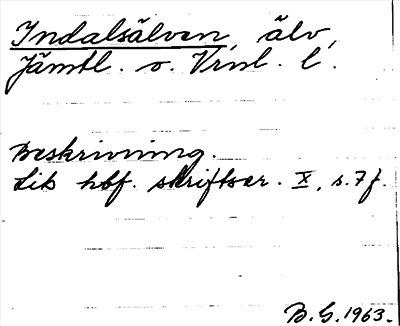 Indalsälven, älv,
Jämtl. o. Vrnl. l.
Beskrivning.
Lits hbf. skriftser. X, s.7f.
B.G.1963.